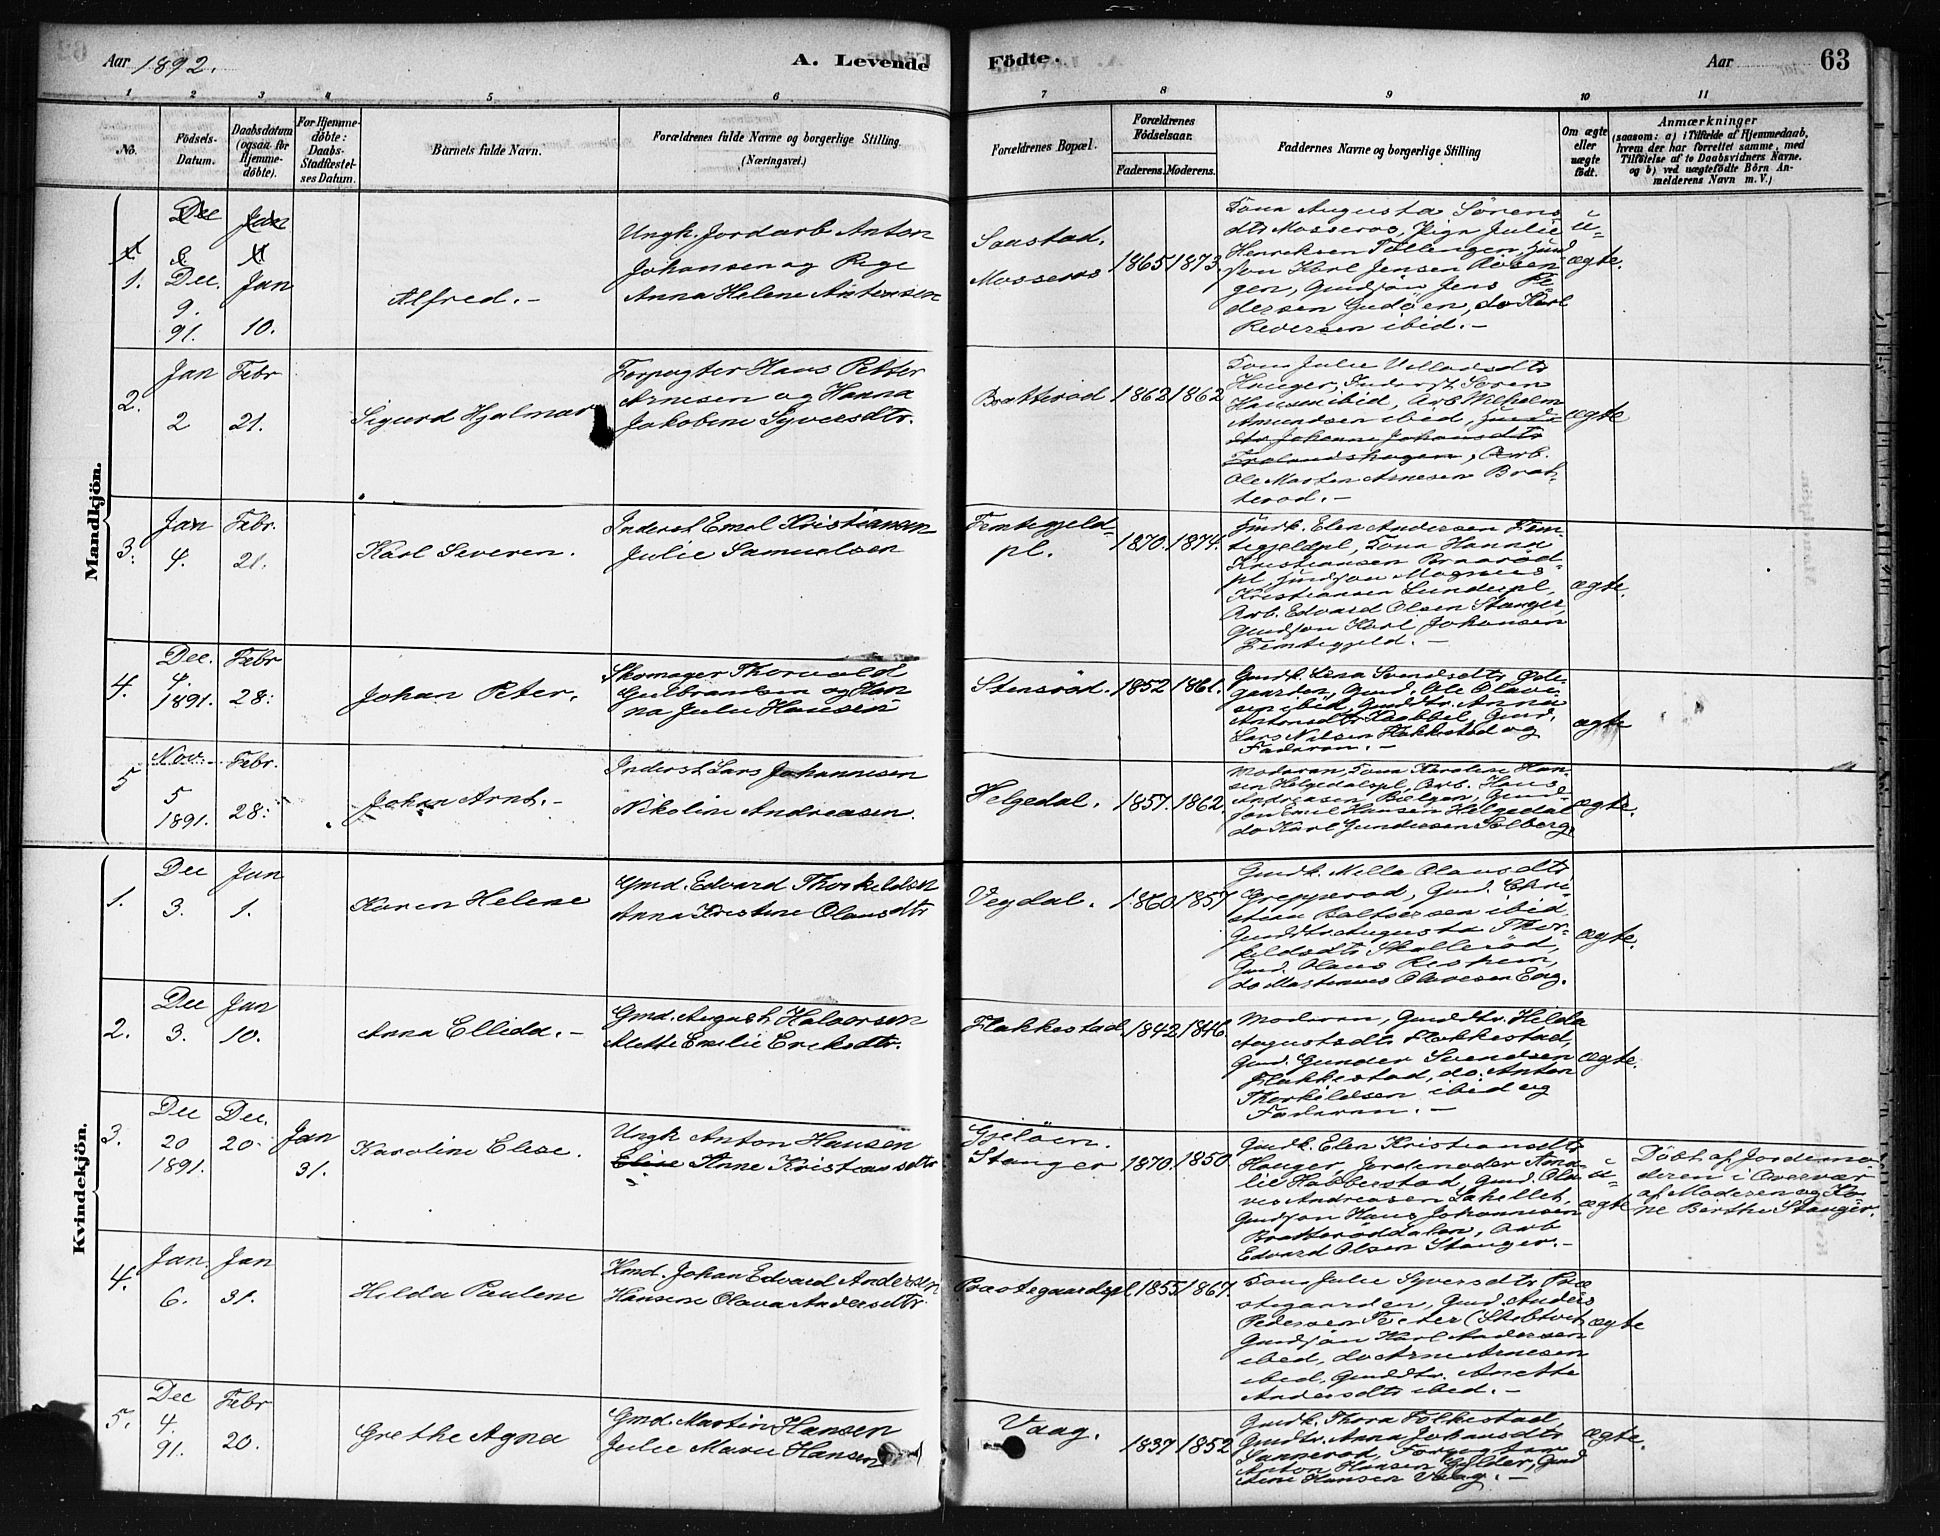 Aar 1892.
A. Levende
Födte.
Aar
63
1
2
3
4
5
6
7
8
9
10
11
No.
Födsels-
Datum.
Daabsdatum
(ogsaa for
Hjemme-
döbte).
For Hjemme-
döbte:
Daabs-
Stadfæstel-
ses Datum.
Barnets fulde Navn.
Forældrenes fulde Navne og borgerlige Stilling
(Næringsvei.)
Forældrenes Bopæl.
Forældrenes
Födselsaar.
Faderens. Moderens.
Faddernes Navne og borgerlige Stilling
Om ægte
eller
uægte
födt.
Anmærkninger
(saasom: a) i Tilfælde af Hjemmedaab,
hvem der har forrettet samme, med
Tilföielse af to Daabsvidners Navne,
og b) ved uægtefödte Börn An-
melderens Navn m. V.)
Mandkjön.
1.
Dec.
9.
91.
Jan
10.
Alfred. –
Ungk. Jordarb Anton
Johansen og Pige
Anna Helene Antensen
Saastad.
Mosseros
1865 1873.
Kona Augusta Sörens
dtr Mosseros, Pige Julie
Henriksen Tollingen, Gmd
sön Karl Jensen
gen, Gmdsön Jens Pe-
dersen Gudöen, do Karl
Pedersen ibid. –
u-
ægte.
2.
Jan
2
Febr
21.
Sigurd Hjalmar
Forpagter Hans Petter
Arnesen og Hanna
Jakobine Syversdtr.
Bratteröd
1862 1862
Kona Julie Villadsdtr
Hauger, Inderst Sören
Hansen ibid, Arb Wilhelm
Amundsen ibid, Gmd
dtr Johanne Johansdtr
, Arb.
Ole Martin Arnesen Brat-
teröd. –
ægte
3.
Jan
4.
Febr.
21.
Karl Severen.
Inderst Emil Kristiansen
Julie Samuelsen
Femtegjeld-
pl.
1870. 1874.
Gmdk. Elen Andersen Fem-
tegjeldpl, Kona Hanna
Kristiansen Braaröd-
pl, Gmdsön Magnus
Kristiansen Lundepl,
Arb. Edvard Olsen Stanger,
Gmdsön Karl Johansen
Femtegjeld. –
ægte.
4.
Dec.
4.
1891.
Febr
28.
Johan Peter.
Skomager Thorvald
Gulbrandsen og Han-
na Julie Hansen
Stensröd.
1852 1861.
Gmdk. Lena Svendsdtr Öde-
gaarden, Gmd. Ole Olave-
sen ibid, Gmddtr. Anna
Antonsdtr Kjobbel, Gmd.
Lars Nilsen Flakkestad og
Faderen. –
ægte
5
Nov.
5
1891.
Febr.
28.
Johan Arnt. –
Inderst Lars Johannesen
Nikoline Andreasen.
Helgedal.
1857. 1862.
Moderen, Kona Karoline Han-
sen Helgedalspl, Arb. Hans
Andreasen Bölgen, Gmd-
sön Emil Hansen Helgedal
do Karl Gundersen Solberg
ægte.
Kvindekjön.
1.
Dec
3.
Jan
1.
Karen Helene
Gmd. Edvard Thorkildsen
Anna Kristine Olausdtr
Vegdal.
1860 1857
Gmdk. Milla Olausdtr
Grepperöd, Gmd. Chri-
stian Baltsersen ibid,
Gmddtr Augusta Thor-
kildsdtr Skalleröd,
Gmd. Olaus
do Martinius Olavesen Eng.
ægte.
2.
Dec
3.
Jan
10.
Anna Ellida. –
Gmd. August Halvorsen
Alette Emilie Eriksdtr.
Flakkestad
1842 1846.
Moderen, Gmddtr. Hilda
Augustsdtr Flakkestad,
Gmd. Gunder Svendsen
Flakkestad, do. Anton
Thorkildsen ibid og
Faderen. –
ægte.
3.
Dec
20
1891.
Dec.
20
Jan
31.
Karoline Elise.
Ungk Anton Hansen
Elise Anne Kristiansdtr
Gjelöen.
Stanger
1870. 1850.
Gmdk. Elen Kristiansdtr
Hauger, Jordmoder Ama-
lie Habberstad, Gmd. Ola-
ves Andreasen Lahellet,
Gmdsön Hans Johannesen
Bratteröddalen, Arb
Edvard Olsen Stanger. –
u-
ægte
Döbt af Jordemo-
deren i Overvær
af Moderen og Ko-
ne Berthe Stanger.
4.
Jan
6.
Jan
31.
Hilda Pauline
Hmd. Johan Edvard Andersen
Hansine Olava Andersdtr
Præstegaardspl
1855 1867.
Kona Julie Syversdtr Præ-
stegaarden, Gmd. Anders
Pedersen (Stobtvet
Gmdsön Karl Andersen
ibid, do Arne Arnesen
ibid, Gmddtr. Anette
Andersdtr ibid. –
ægte
5.
Dec
4.
91.
Febr
20.
Grethe Agna
Gmd. Martin Hansen
Julie Marie Hansen
Vaag.
1837 1852
Gmdk. Thora Folkestad,
Gmddtr. Anna Johansdtr
Sanneröd, Forpagter
Anton Hansen Gylder, Gmd
Arne Hansen Vaag. –
ægte.